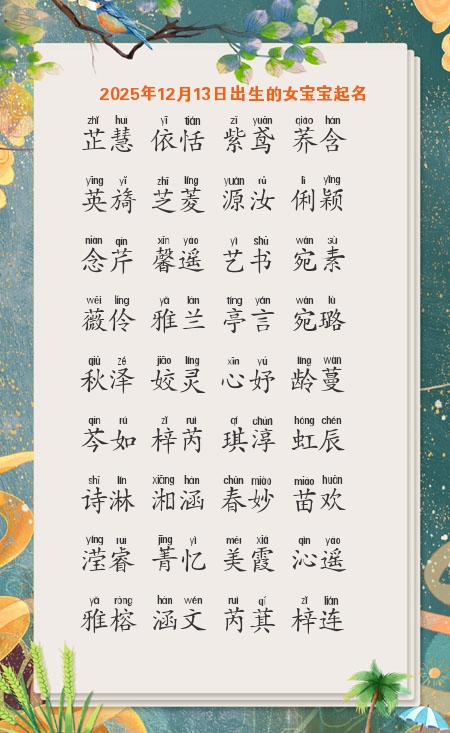 2025年12月13日出生的女宝宝起名
zhǐ huì yī tián zǐ yuān qiáo hán
芷慧 依恬 紫鸢 荞含
yīng yǐ zhī líng yuán rǔ lì yǐng
英旖 芝菱 源汝 俐颖
niàn qín xīn yáo yì shū wǎn sù
念芹 馨遥 艺书 宛素
wēi líng yǎ lán tíng yán wǎn lù
薇伶 雅兰 亭言 宛璐
qiū zé jiāo líng xīn yú líng wàn
秋泽 姣灵 心妤 龄蔓
qín rú zǐ ruì qí chún hóng chén
芩如 梓芮 琪淳 虹辰
shī lín xiāng hán chūn miào miáo huān
诗淋 湘涵 春妙 苗欢
yíng ruì jīng yì měi xiá qìn yáo
滢睿 菁忆 美霞 沁遥
yǎ róng hán wén ruì qí zǐ lián
雅榕 涵文 芮萁 梓连